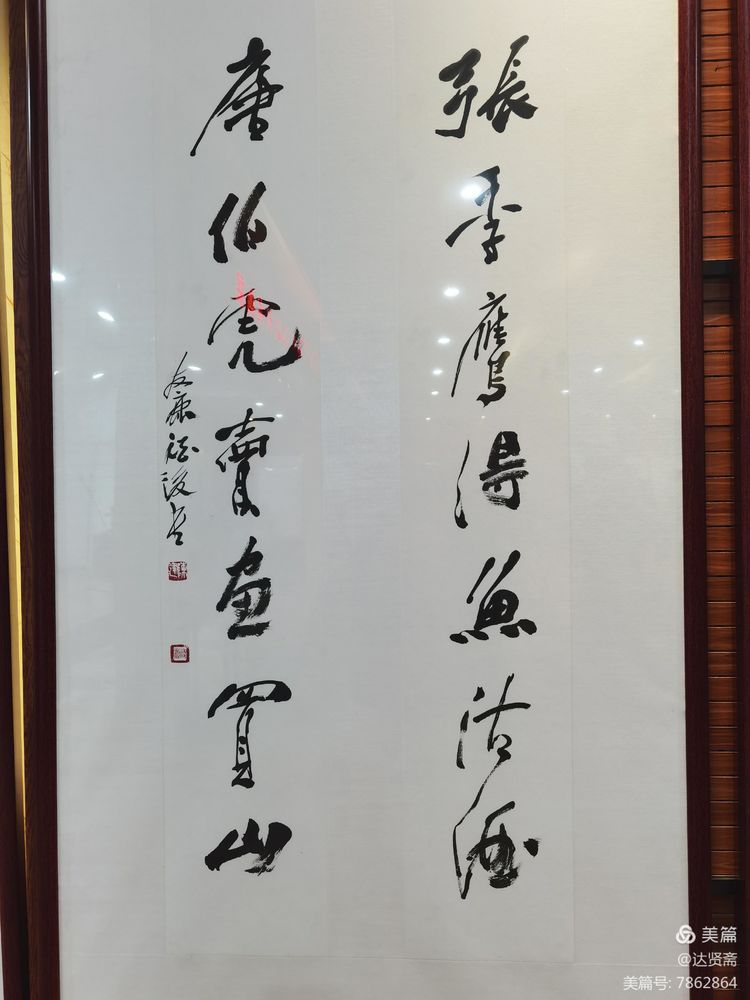 張季鷹得魚沽酒
唐伯虎賣畫買山
美篇
@达贤斋
美篇号: 7862864